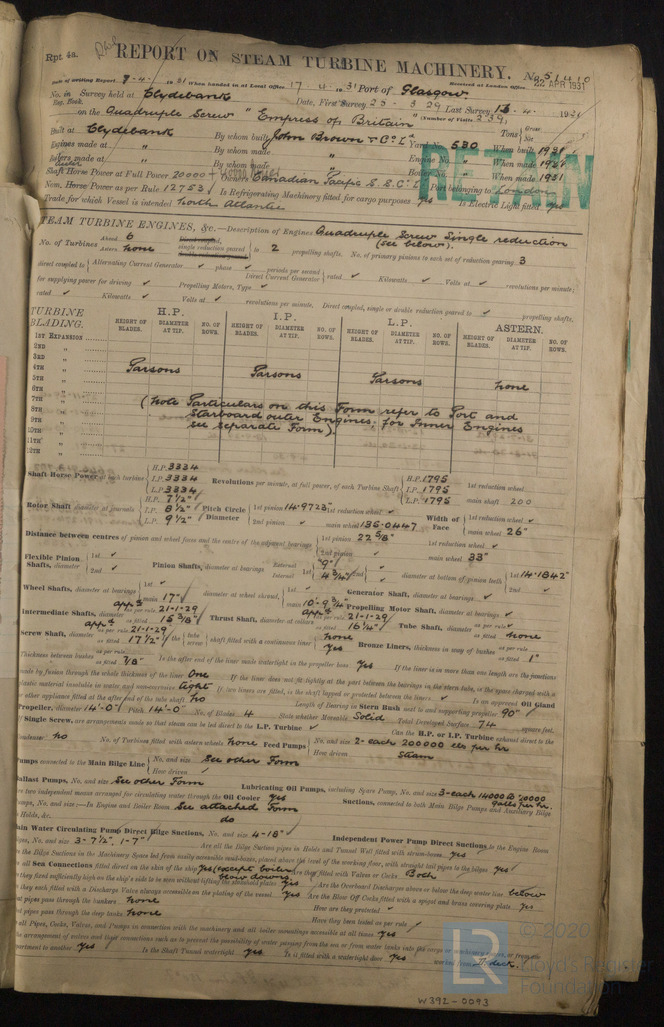 Rpt. 4a.
REPORT ON STEAM TURBINE MACHINERY. No. 51410
22 APR 1931
Date of writing Report 9-4-1931 When handed in at Local Office 17.4.1931 Port of Glasgow Received at London Office
No. in Survey held at Clydebank Date, First Survey 23-3-29 Last Survey 13.4.1931
Reg. Book. (Number of Visits 239)
on the Quadruple Screw "Empress of Britain" Tons Gross Net
Built at Clydebank By whom built John Brown & Co. Ld Yard No. 530 When built 1931
Engines made at " By whom made " Engine No. " When made 1931
Boilers made at " By whom made " Boiler No. When made 1931
Shaft Horse Power at Full Power 20000 Owners Canadian Pacific S.S. Co. Ld Port belonging to London
Nom. Horse Power as per Rule 12753 Is Refrigerating Machinery fitted for cargo purposes yes Is Electric Light fitted yes
Trade for which Vessel is intended North Atlantic
RETAIN
STEAM TURBINE ENGINES, &c.—Description of Engines Quadruple Screw Single reduction
(see below).
No. of Turbines Ahead 6 Astern none single reduction geared to 2 propelling shafts. No. of primary pinions to each set of reduction gearing 3
direct coupled to Alternating Current Generator phase periods per second Direct Current Generator rated Kilowatts Volts at revolutions per minute;
for supplying power for driving Propelling Motors, Type
rated Kilowatts Volts at revolutions per minute. Direct coupled, single or double reduction geared to propelling shafts.
TURBINE BLADING. H.P. I.P. L.P. ASTERN.
HEIGHT OF BLADES. DIAMETER AT TIP. NO. OF ROWS. HEIGHT OF BLADES. DIAMETER AT TIP. NO. OF ROWS. HEIGHT OF BLADES. DIAMETER AT TIP. NO. OF ROWS. HEIGHT OF BLADES. DIAMETER AT TIP. NO. OF ROWS.
1ST EXPANSION
2ND "
3RD "
4TH " Parsons Parsons Parsons none
5TH "
6TH "
7TH " (Note Particulars on this Form refer to Port and
8TH " Starboard outer Engines; for Inner Engines
9TH " see separate Form)
10TH "
11TH "
12TH "
Shaft Horse Power at each turbine H.P. 3334 I.P. 3334 L.P. 3334 Revolutions per minute, at full power, of each Turbine Shaft H.P. 1795 I.P. 1795 L.P. 1795 1st reduction wheel main shaft 200
Rotor Shaft diameter at journals H.P. 7½" I.P. 8½" L.P. 9½" Pitch Circle Diameter 1st pinion 14.9728 1st reduction wheel 2nd pinion main wheel 135.0447 Width of Face 1st reduction wheel main wheel 26"
Distance between centres of pinion and wheel faces and the centre of the adjacent bearings 1st pinion 22⅝" 2nd pinion 1st reduction wheel main wheel 33"
Flexible Pinion Shafts, diameter 1st 2nd Pinion Shafts, diameter at bearings External 9" Internal 4¾" 1st 2nd diameter at bottom of pinion teeth 1st 14.1842" 2nd
Wheel Shafts, diameter at bearings 1st main 17" diameter at wheel shroud, 1st main 10-9¾" Generator Shaft, diameter at bearings Propelling Motor Shaft, diameter at bearings
Intermediate Shafts, diameter as per rule appd 21-1-29 as fitted 15⅜" Thrust Shaft, diameter at collars as per rule appd 21-1-29 as fitted 16¼" Tube Shaft, diameter as per rule as fitted none
Screw Shaft, diameter as per rule appd 21-1-29 as fitted 17½" Is the tube screw shaft fitted with a continuous liner none yes Bronze Liners, thickness in way of bushes as per rule as fitted 1"
Thickness between bushes as per rule as fitted ⅞" Is the after end of the liner made watertight in the propeller boss yes If the liner is in more than one length are the junctions
made by fusion through the whole thickness of the liner One If the liner does not fit tightly at the part between the bearings in the stern tube, is the space charged with a
plastic material insoluble in water and non-corrosive tight If two liners are fitted, is the shaft lapped or protected between the liners Is an approved Oil Gland
or other appliance fitted at the after end of the tube shaft no Length of Bearing in Stern Bush next to and supporting propeller 90"
Propeller, diameter 14'-0" Pitch 14'-0" No. of Blades 4 State whether Moveable Solid Total Developed Surface 74 square feet.
If Single Screw, are arrangements made so that steam can be led direct to the L.P. Turbine Can the H.P. or I.P. Turbine exhaust direct to the
Condenser no No. of Turbines fitted with astern wheels none Feed Pumps No. and size 2-each 200000 lbs per hr How driven Steam
Pumps connected to the Main Bilge Line No. and size See other Form How driven
Ballast Pumps, No. and size See other Form Lubricating Oil Pumps, including Spare Pump, No. and size 3-each 14000 to 20000 galls per hr.
Are two independent means arranged for circulating water through the Oil Cooler yes Suctions, connected to both Main Bilge Pumps and Auxiliary Bilge
Pumps, No. and size:—In Engine and Boiler Room See attached Form
In Holds, &c. do
Main Water Circulating Pump Direct Bilge Suctions, No. and size 4-18" Independent Power Pump Direct Suctions to the Engine Room
Bilges, No. and size 3-7½", 1-7" Are all the Bilge Suction pipes in Holds and Tunnel Well fitted with strum-boxes yes
Are the Bilge Suctions in the Machinery Spaces led from easily accessible mud-boxes, placed above the level of the working floor, with straight tail pipes to the bilges yes
Are all Sea Connections fitted direct on the skin of the ship yes (except boiler blow downs) Are they fitted with Valves or Cocks Both
Are they fixed sufficiently high on the ship's side to be seen without lifting the stokehold plates yes Are the Overboard Discharges above or below the deep water line below
Are they each fitted with a Discharge Valve always accessible on the plating of the vessel yes Are the Blow Off Cocks fitted with a spigot and brass covering plate yes
What pipes pass through the bunkers none How are they protected
What pipes pass through the deep tanks none Have they been tested as per rule
Are all Pipes, Cocks, Valves, and Pumps in connection with the machinery and all boiler mountings accessible at all times yes
Is the arrangement of valves and their connections such as to prevent the possibility of water passing from the sea or from water tanks into the cargo or machinery spaces, or from one
compartment to another yes Is the Shaft Tunnel watertight yes Is it fitted with a watertight door yes worked from deck
W392-0093
LR
© 2026
Lloyd's Register
Foundation